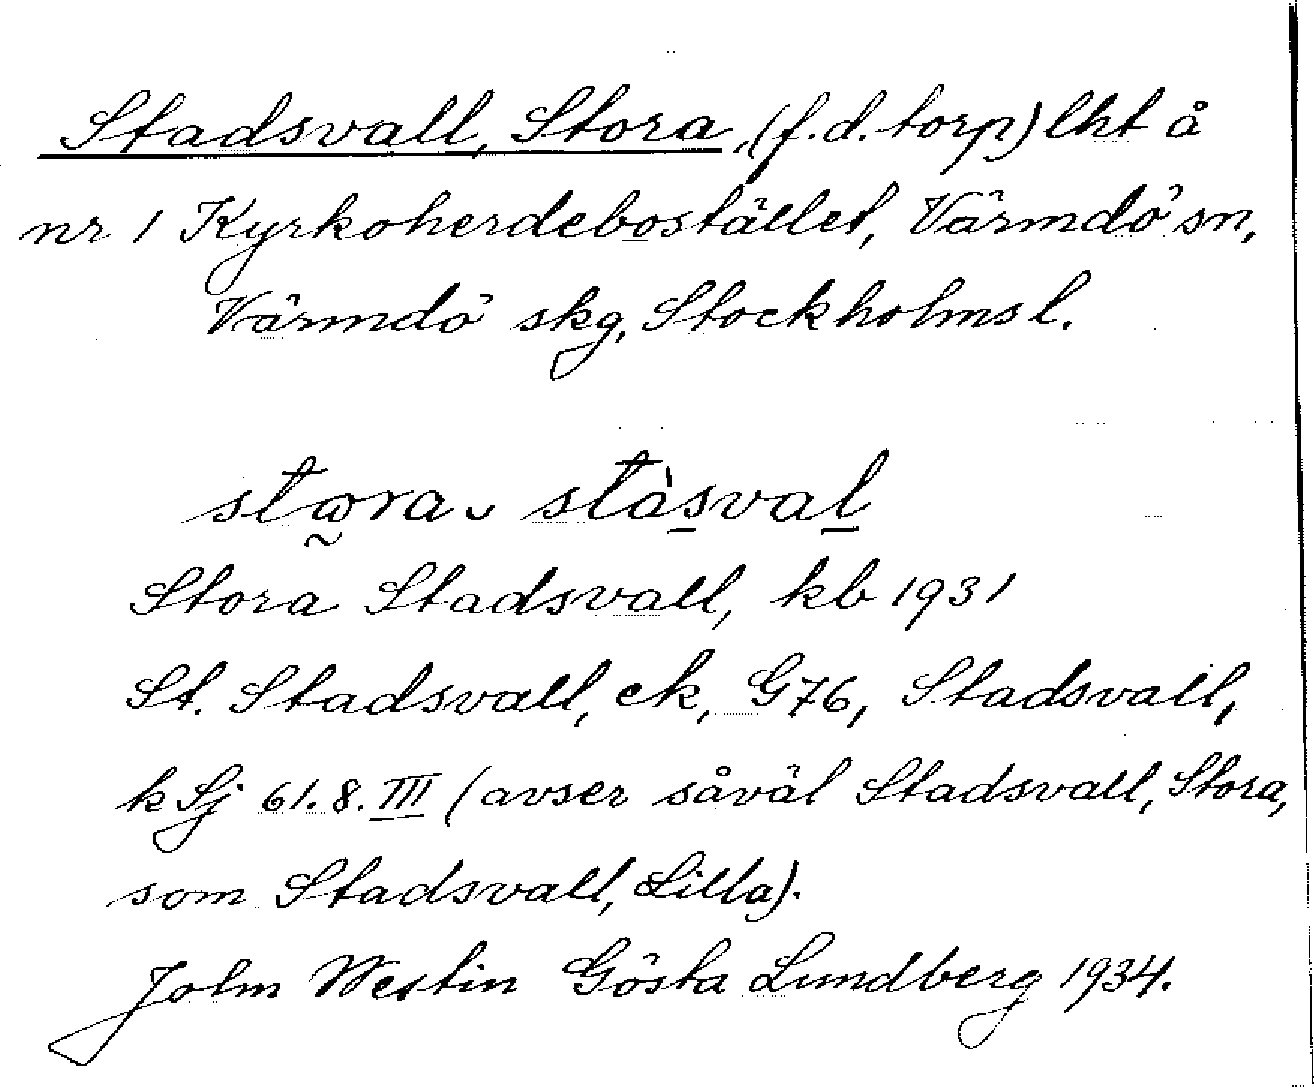 Stadsvall, Stora, (f.d. torp) lht å
nr 1 Kyrkoherdebostället, Värmdö sn,
Värmdö skg, Stockholms l.
stɷ̰ra ᴗ stàs̲val̲
Stora Stadsvall, kb 1931
St. Stadsvall, ek, G76, Stadsvall,
kSj 61.8.III (avser såväl Stadsvall, Stora,
som Stadsvall, Lilla).
John Westin Gösta Lundberg 1934.